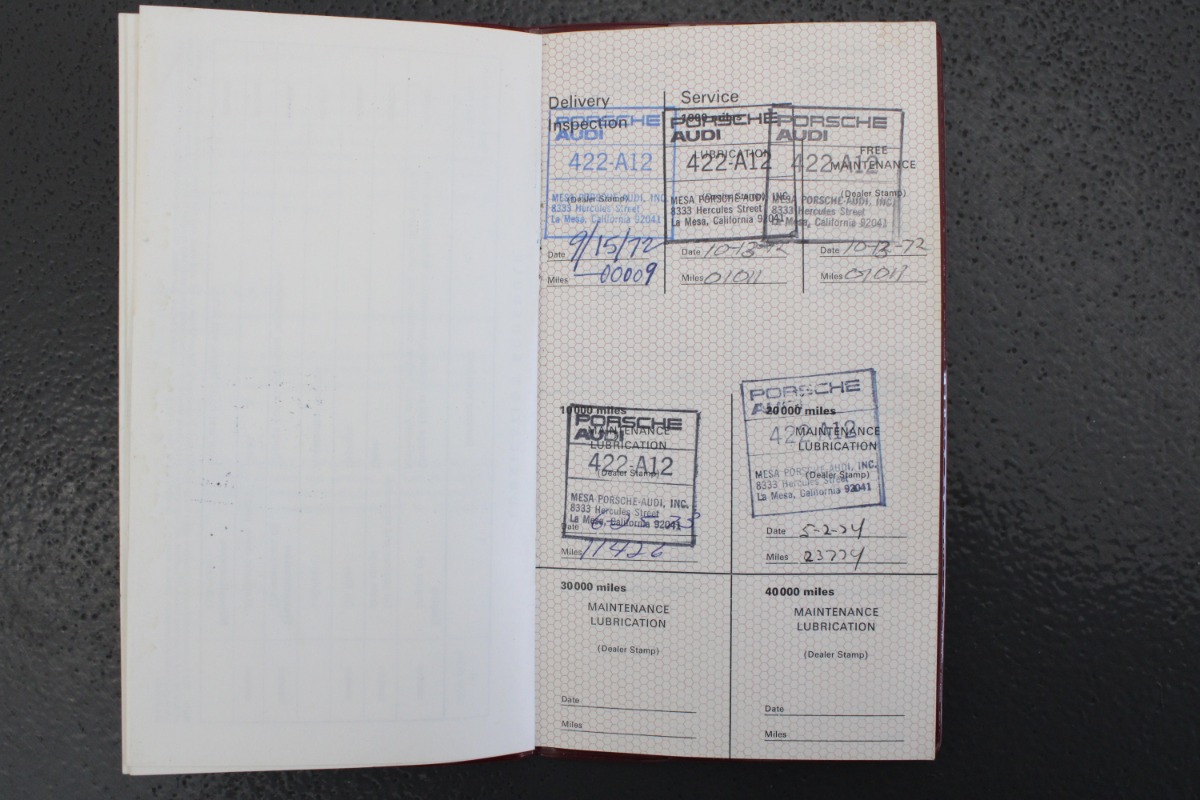 Delivery
Inspection
PORSCHE
AUDI
422-A12
(Dealer Stamp)
MESA PORSCHE-AUDI, INC.
8333 Hercules Street
La Mesa, California 92041
Date 9/15/72
Miles 00009
Service
1000 miles
PORSCHE
AUDI
LUBRICATION
422-A12
(Dealer Stamp)
MESA PORSCHE-AUDI, INC.
8333 Hercules Street
La Mesa, California 92041
Date 10-13-72
Miles 01011
PORSCHE
AUDI
FREE
MAINTENANCE
422-A12
(Dealer Stamp)
MESA PORSCHE-AUDI, INC.
8333 Hercules Street
La Mesa, California 92041
Date 10-13-72
Miles 01011
10000 miles
PORSCHE
AUDI
MAINTENANCE
LUBRICATION
422-A12
(Dealer Stamp)
MESA PORSCHE-AUDI, INC.
8333 Hercules Street
La Mesa, California 92041
Date
Miles 11426
PORSCHE
AUDI
20000 miles
422-A12
MAINTENANCE
LUBRICATION
(Dealer Stamp)
MESA PORSCHE-AUDI, INC.
8333 Hercules Street
La Mesa, California 92041
Date 5-2-74
Miles 23774
30000 miles
MAINTENANCE
LUBRICATION
(Dealer Stamp)
Date
Miles
40000 miles
MAINTENANCE
LUBRICATION
(Dealer Stamp)
Date
Miles